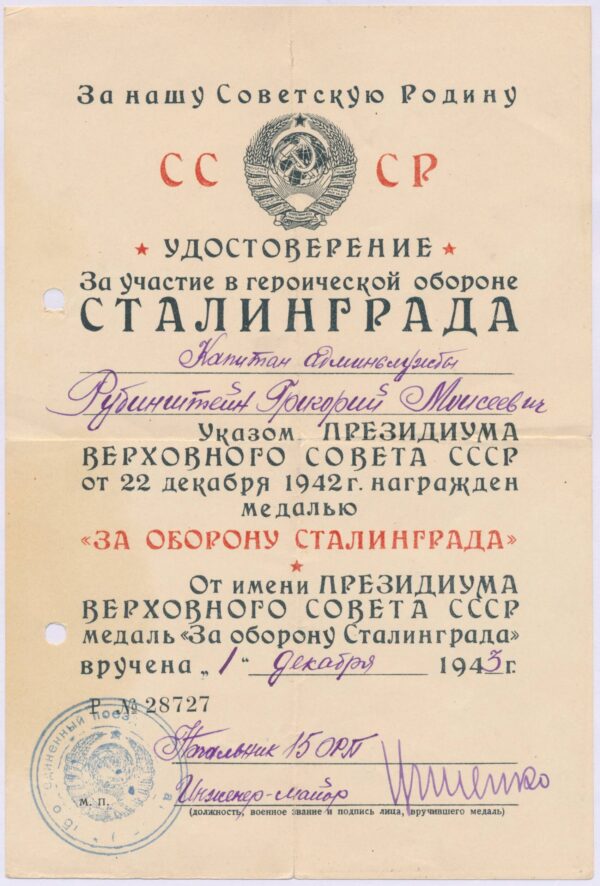 За нашу Советскую Родину
СС СР
УДОСТОВЕРЕНИЕ
За участие в героической обороне
СТАЛИНГРАДА
Капитан админслужбы
Рубинштейн Григорий Моисеевич
Указом ПРЕЗИДИУМА
ВЕРХОВНОГО СОВЕТА СССР
от 22 декабря 1942 г. награжден
медалью
«ЗА ОБОРОНУ СТАЛИНГРАДА»
От имени ПРЕЗИДИУМА
ВЕРХОВНОГО СОВЕТА СССР
медаль «За оборону Сталинграда»
вручена „1" декабря 1943 г.
Р № 28727
Начальник 15 ОРП
М. П.
Инженер-майор
(должность, военное звание и подпись лица, вручившего медаль)